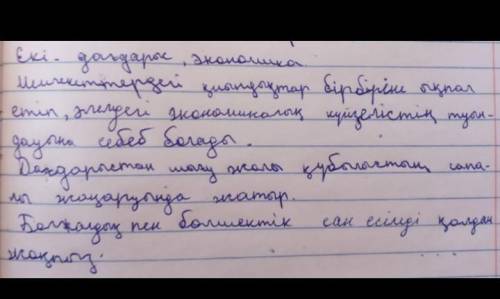 Екі - дағдарыс, экономика
Мемлекеттердегі қиындықтар бірбіріне ықпал
етіп, әлемдегі экономикалық күйзелістің туын-
дауына себеб болады.
Дағдарыстан шығу жолы құбылыстың сапа-
лы жаңаруында жатыр.
Болжалдық пен бөлшектік сан есімді қолдан
жазыңыз.